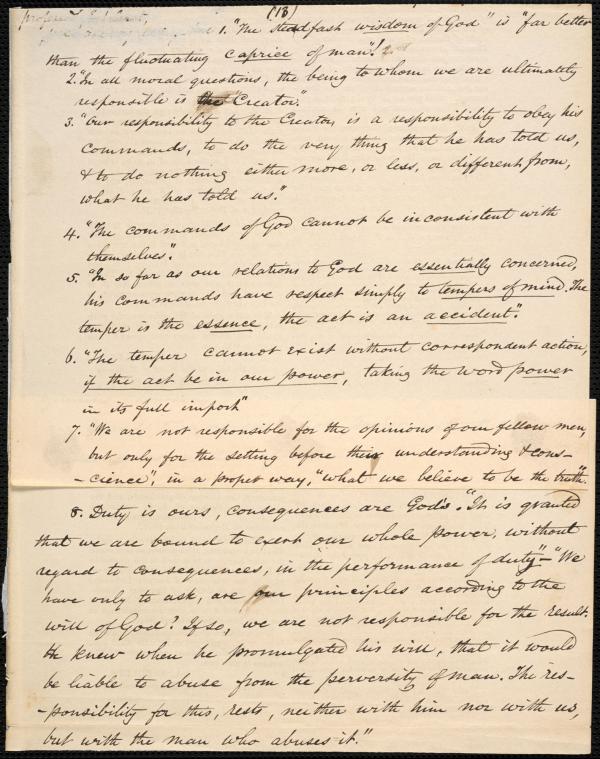 (13)
1. "The steadfast wisdom of God" is "far better
than the fluctuating caprice of man"!
2. "In all moral questions, the being to whom we are ultimately
responsible is the Creator."
3. "Our responsibility to the Creator, is a responsibility to obey his
commands, to do the very thing that he has told us,
& to do nothing either more, or less, or different from,
what he has told us."
4. "The commands of God cannot be inconsistent with
themselves".
5. "In so far as our relations to God are essentially concerned,
his commands have respect simply to tempers of mind. The
temper is the essence, the act is an accident".
6. "The temper cannot exist without correspondent action,
if the act be in our power, taking the word power
in its full import"
7. "We are not responsible for the opinions of our fellow men,
but only for the setting before their understanding & cons-
-cience", in a proper way, "what we believe to be the truth".
8. Duty is ours, consequences are God's. "It is granted
that we are bound to exert our whole power, without
regard to consequences, in the performance of duty"- "We
have only to ask, are our principles according to the
will of God? If so, we are not responsible for the result.
He knew when he promulgated his will, that it would
be liable to abuse from the perversity of man. The res-
-ponsibility for this, rests, neither with him nor with us,
but with the man who abuses it."